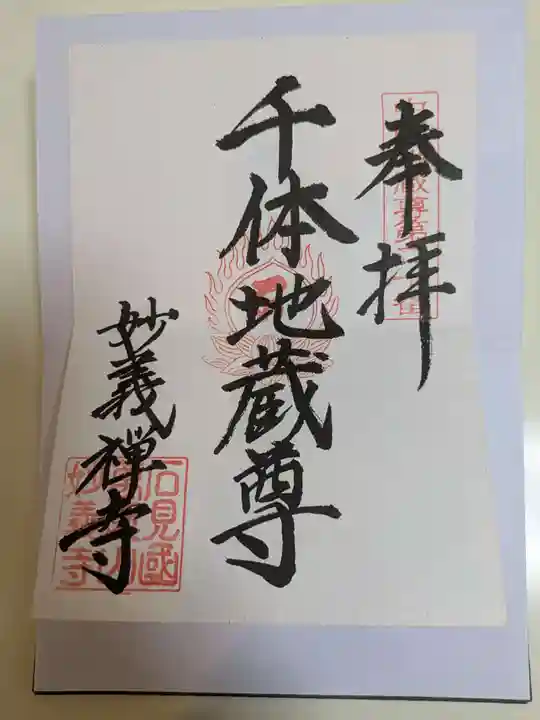 奉拝
千体地蔵尊
妙義禅寺
石見國
妙義寺